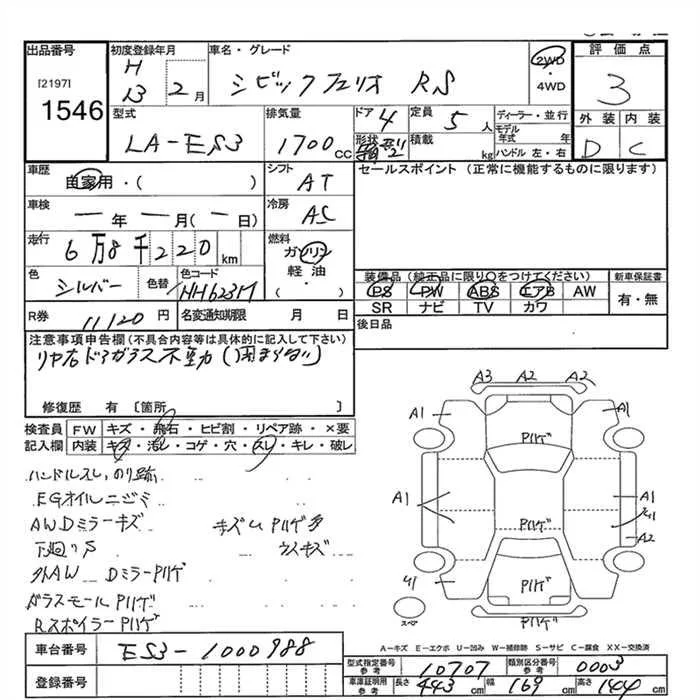 出品番号 初度登録年月 車名・グレード 評価点
[2197] H
1546 13 2月 シビックフェリオ RS 2WD・4WD 3
型式 排気量 ドア 定員 ディーラー・並行 外装 内装
LA-ES3 1700cc 4 5人 モデル年式 年 D C
形状 箱型 積載 kg ハンドル 左・右
車歴 自家用・( ) シフト AT セールスポイント (正常に機能するものに限ります)
車検 ー年ー月(ー日) 冷房 AC
走行 6万8千220km 燃料 ガソリン 軽油・( )
色 シルバー 色替 色コード NH623M 装備品 (純正品に限り○をつけてください) 新車保証書
PS PW ABS エアB AW 有・無
SR ナビ TV カワ
R券 11120円 名変通知期限 月 日 後日品
注意事項申告欄(不具合内容等は具体的に記入して下さい)
リヤ右ドアガラス不動
修復歴 有 [箇所 ]
検査員 FW キズ・飛石・ヒビ割・リペア跡・×要
記入欄 内装 キズ・汚レ・コゲ・穴・スレ・キレ・破レ
A3 A2 A2
A1 A1
Pハゲ
ハンドルスレ,のり跡
EGオイルニジミ
AWDミラーキズ キズUPハゲ多
A1 A1
Pハゲ
下廻りS ウスキズ
A2
外AW DミラーPハゲ
Pハゲ
ガラスモールPハゲ
スペア Pハゲ
RスポイラーPハゲ
A-キズ E-エクボ U-凹み W-補修跡 S-サビ C-腐食 XX-交換済
車台番号 ES3-1000988
型式指定番号 参考 10707 類別区分番号 参考 0003
登録番号 車庫証明用 参考 長さ 443cm 幅 169cm 高さ 144cm